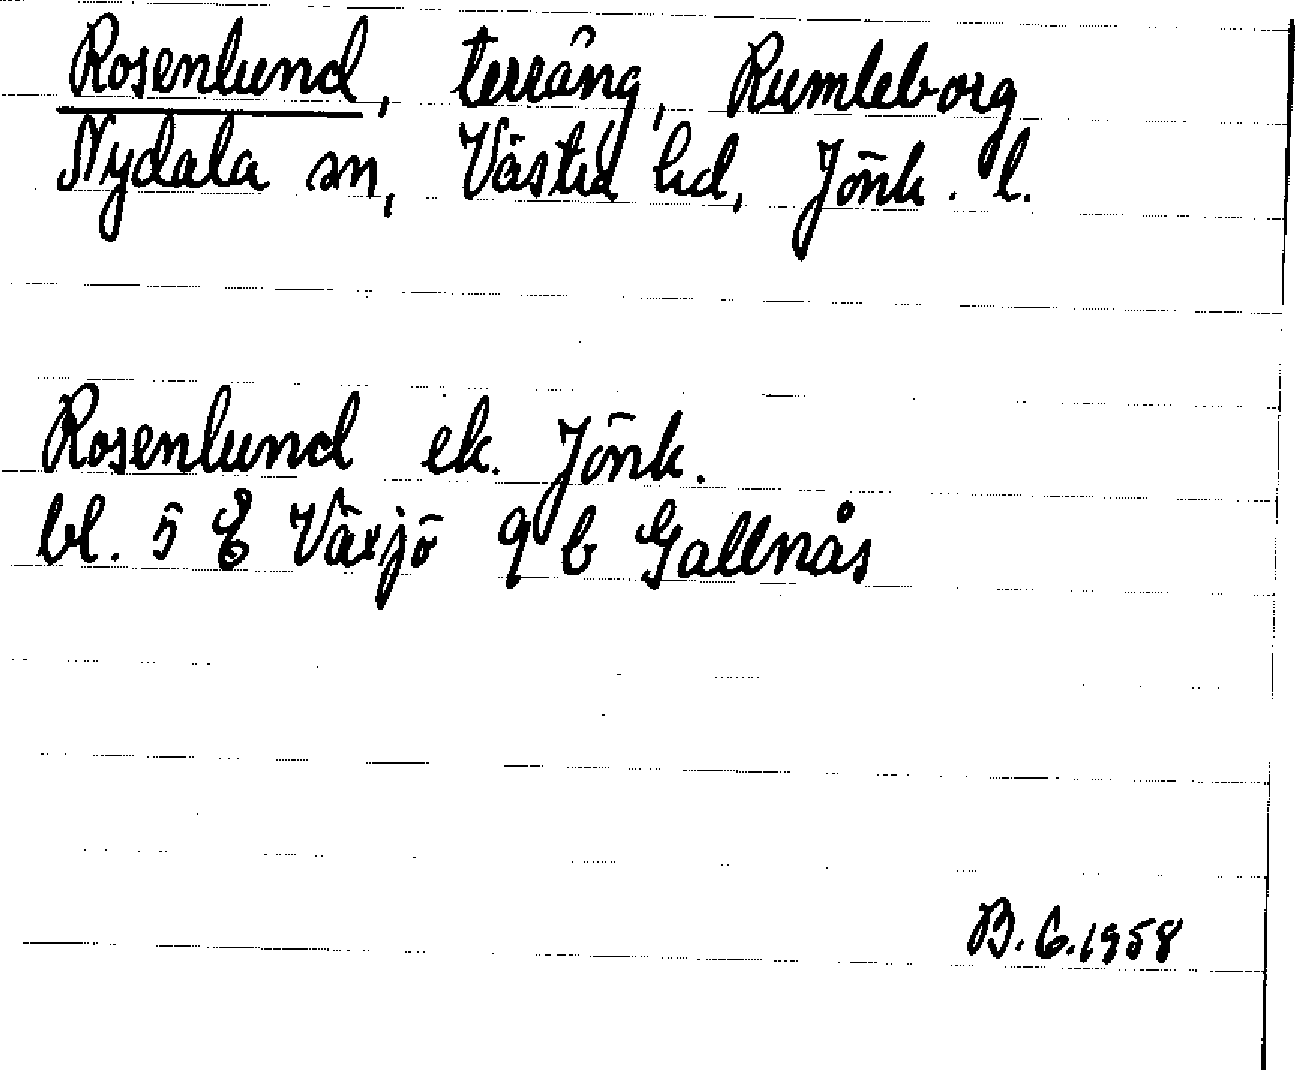 Rosenlund, terräng, Rumleborg
Nydala sn, Västra hd, Jönk. l.
Rosenlund ek. Jönk.
bl. 5 E Växjö 9 b Gallnås
B.G.1958